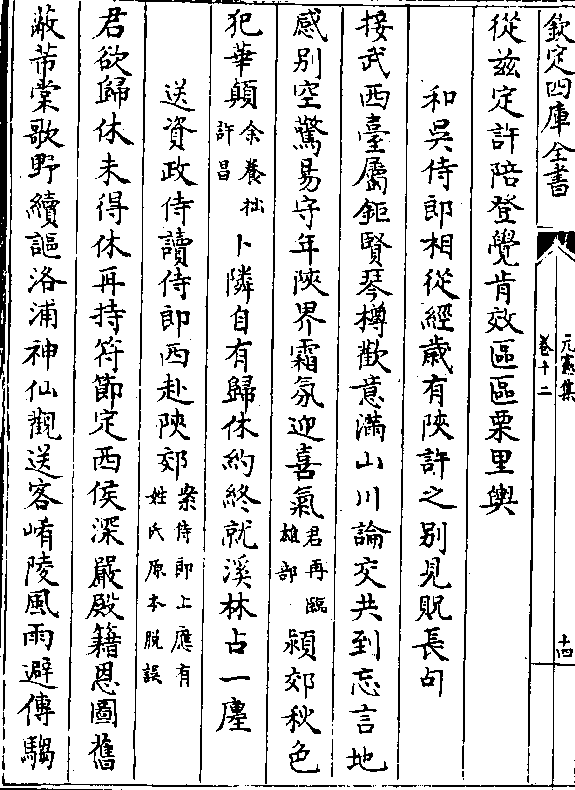 欽定四庫全書
元憲集
卷十二
十四
從兹定許陪登覺肯效區區栗里輿
和吳侍郎相從經歲有陝許之别見貺長句
接武西臺屬鉅賢琴樽歡意滿山川論交共到忘言地
感别空驚易守年陝界霜氛迎喜氣君再臨雄部潁郊秋色
犯華顛余養拙許昌卜隣自有歸休約終就溪林占一廛
送資政侍讀侍郎西赴陝郊案侍郎上應有姓氏原本脱誤
君欲歸休未得休再持符節定西侯深嚴殿籍恩圖舊
蔽芾棠歌野續謳洛浦神仙觀送客崤陵風雨避傳騶